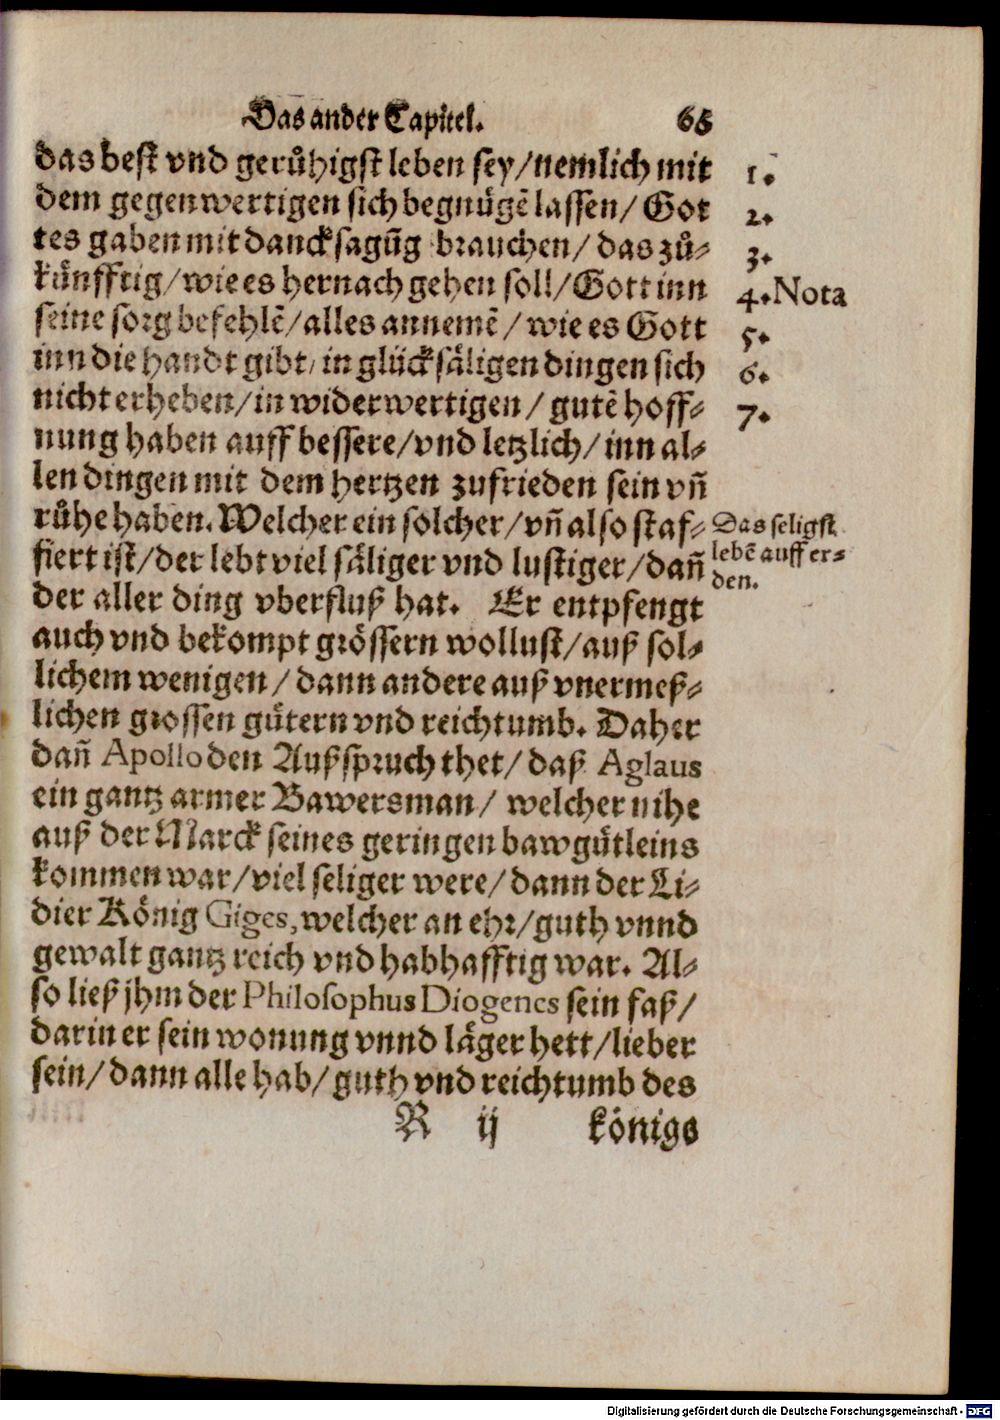 Das ander Capitel. 65
das best vnd gerůhigst leben sey/nemlich mit 1.
dem gegenwertigen sich begnügẽ lassen/ Got 2.
tes gaben mit dancksagũg brauchen/ das zů⸗ 3.
künfftig/wie es hernach gehen soll/Gott inn 4. Nota
seine sorg befehlẽ/alles annemẽ/wie es Gott 5.
inn die handt gibt/in glücksäligen dingen sich 6.
nicht erheben/in widerwertigen/ gutẽ hoff⸗ 7.
nung haben auff bessere/vnd letzlich/inn al⸗
len dingen mit dem hertzen zufrieden sein vñ
růhe haben. Welcher ein solcher/vñ also staf⸗ Das seligst
fiert ist/der lebt viel säliger vnd lustiger/dañ lebẽ auff er⸗
der aller ding vberfluß hat. Er entpfengt den.
auch vnd bekompt grössern wollust/auß sol⸗
lichem wenigen/ dann andere auß vnermeß⸗
lichen grossen gütern vnd reichtumb. Daher
dañ Apollo den Außspruch thet/ daß Aglaus
ein gantz armer Bawersman/ welcher nihe
auß der Marck seines geringen bawgütleins
kommen war/viel seliger were/dann der Li⸗
dier König Giges, welcher an ehr/guth vnnd
gewalt gantz reich vnd habhafftig war. Al⸗
so ließ jhm der Philosophus Diogenes sein faß/
darin er sein wonung vnnd läger hett/lieber
sein/dann alle hab/guth vnd reichtumb des
R ij königs
Digitalisierung gefördert durch die Deutsche Forschungsgemeinschaft - DFG